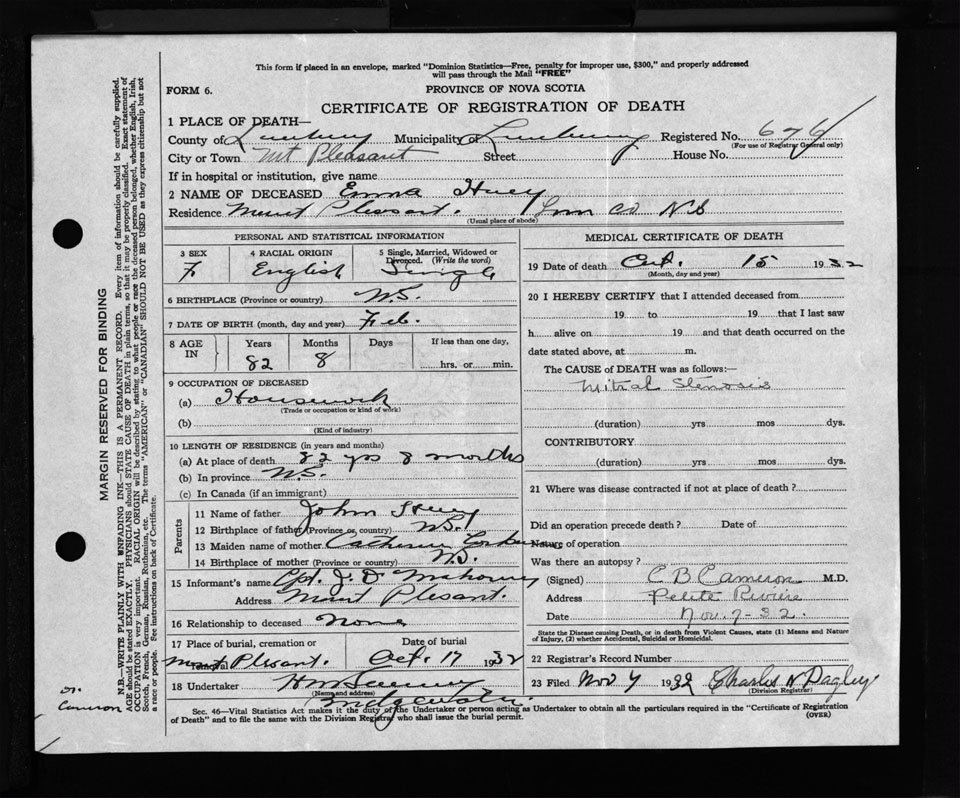 This form if placed in an envelope, marked "Dominion Statistics—Free, penalty for improper use, $300," and properly addressed
will pass through the Mail "FREE"
FORM 6.
PROVINCE OF NOVA SCOTIA
CERTIFICATE OF REGISTRATION OF DEATH
1 PLACE OF DEATH—
County of Lunenburg Municipality of Lunenburg Registered No. 676
(For use of Registrar General only)
City or Town Mt Pleasant Street House No.
If in hospital or institution, give name
2 NAME OF DECEASED Emma Huey
Residence Mount Pleasant. Lun Co N.S
(Usual place of abode)
PERSONAL AND STATISTICAL INFORMATION
3 SEX 4 RACIAL ORIGIN 5 Single, Married, Widowed or Divorced. (Write the word)
F English Single
6 BIRTHPLACE (Province or country) N.S.
7 DATE OF BIRTH (month, day and year) Feb.
8 AGE IN Years Months Days If less than one day,
82 8 hrs. or min.
9 OCCUPATION OF DECEASED
(a) Housework
(Trade or occupation or kind of work)
(b)
(Kind of industry)
10 LENGTH OF RESIDENCE (in years and months)
(a) At place of death 82 yrs 8 months
(b) In province N.S.
(c) In Canada (if an immigrant)
Parents
11 Name of father John Huey
12 Birthplace of father (Province or country) N.S.
13 Maiden name of mother Catherine
14 Birthplace of mother (Province or country) N.S.
15 Informant's name Cpt. J. D. Mahoney
Address Mount Plesant.
16 Relationship to deceased None
17 Place of burial, cremation or removal Date of burial
Mount Plesant. Oct. 17 1932
18 Undertaker
(Name and address)
MEDICAL CERTIFICATE OF DEATH
19 Date of death Oct. 15 1932
(Month, day and year)
20 I HEREBY CERTIFY that I attended deceased from
19 to 19 that I last saw
h alive on 19 and that death occurred on the
date stated above, at m.
The CAUSE of DEATH was as follows:—
Mitral Stenosis
(duration) yrs mos dys.
CONTRIBUTORY
(duration) yrs mos dys.
21 Where was disease contracted if not at place of death?
Did an operation precede death? Date of
Nature of operation
Was there an autopsy?
(Signed) C B Cameron M.D.
Address Petite Riviere
Date Nov. 7-32.
State the Disease causing Death, or in death from Violent Causes, state (1) Means and Nature
of Injury, (2) whether Accidental, Suicidal or Homicidal.
22 Registrar's Record Number
23 Filed Nov 7 1932 Charles N Dagley
(Division Registrar)
Sec. 46—Vital Statistics Act makes it the duty of the Undertaker or person acting as Undertaker to obtain all the particulars required in the "Certificate of Registration
of Death" and to file the same with the Division Registrar who shall issue the burial permit.
(OVER)
MARGIN RESERVED FOR BINDING
N.B.—WRITE PLAINLY WITH UNFADING INK—THIS IS A PERMANENT RECORD. Every item of information should be carefully supplied.
AGE should be stated EXACTLY. PHYSICIANS should STATE CAUSE OF DEATH in plain terms, so that it may be properly classified. Exact statement of
OCCUPATION is very important. RACIAL ORIGIN will be described by stating to what people or race the deceased person belonged, whether English, Irish,
Scotch, French, German, Russian, Ruthenian, etc. The terms "AMERICAN" or "CANADIAN" SHOULD NOT BE USED as they express citizenship but not
a race or people. See instructions on back of Certificate.
Dr.
Cameron